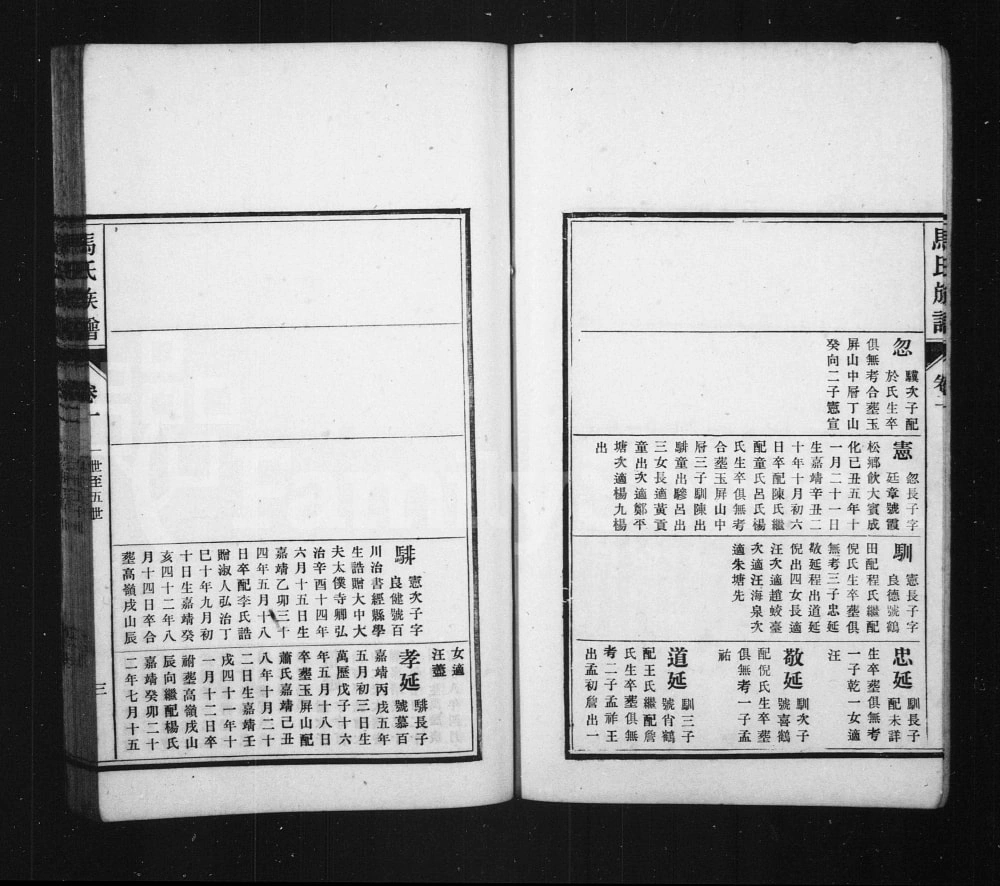 馬氏族譜
卷一
忽
驥次子配
於氏生卒
俱無考合墓玉
屏山中層丁山
癸向二子憲宣
憲
忽長子字
廷章號霞
松鄉飲大賓成
化己丑五年十
一月二十一日
生嘉靖辛丑二
十年十月初六
日卒配陳氏繼
配童氏呂氏楊
氏生卒俱無考
合墓玉屏山中
層三子馴陳出
騑童出驂呂出
三女長適黃貢
童出次適鄭平
塘次適楊九楊
出
馴
憲長子字
良德號鶴
田配程氏繼配
倪氏生卒墓俱
無考三子忠延
敬延程出道延
倪出四女長適
汪次適趙蛟臺
次適汪海泉次
適朱塘先
忠延
馴長子
配未詳
生卒墓俱無考
一子乾一女適
汪
敬延
馴次子
號喜鶴
配倪氏生卒墓
俱無考一子孟
祐
道延
馴三子
號肖鶴
配王氏繼配詹
氏生卒墓俱無
考二子孟祥王
出孟初詹出一
女適
汪藎
騑
憲次子字
良健號百
川治書經縣學
生誥贈大中大
夫太僕寺卿弘
治辛酉十四年
六月十五日生
嘉靖乙卯三十
四年五月十八
日卒配李氏誥
贈淑人弘治丁
巳十年九月初
十日生嘉靖癸
亥四十二年八
月十四日卒合
墓高嶺戌山辰
孝延
騑長子
號慕百
嘉靖丙戌五年
五月初三日生
萬歷戊子十六
年五月十八日
卒墓玉屏山配
蕭氏嘉靖己丑
八年十月二十
二日生嘉靖壬
戌四十一年十
一月十二日卒
祔墓高嶺戌山
辰向繼配楊氏
嘉靖癸卯二十
二年七月十五
馬氏族譜
卷一
一世至五世
三